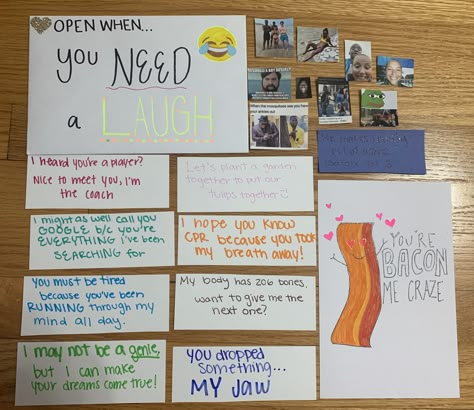 OPEN WHEN...
YOU NEED
a LAUGH
I heard you're a player?
Nice to meet you, I'm
the coach
Let's plant a garden
together to put our
tulips together
I might as well call you
GOOGLE b/c you're
EVERYTHING i've been
SEARCHING for
I hope you know
CPR because you took
my breath away!
You must be tired
because you've been
RUNNING through my
mind all day.
My body has 206 bones,
want to give me the
next one?
I may not be a genie,
but I can make
your dreams come true!
You dropped
something...
MY JAW
YOU'RE
BACON
ME CRAZE